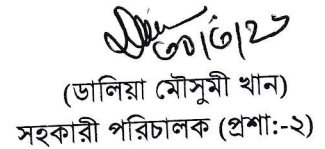 ৩০/৩/২১
(ডালিয়া মৌসুমী খান)
সহকারী পরিচালক (প্রশা:-২)